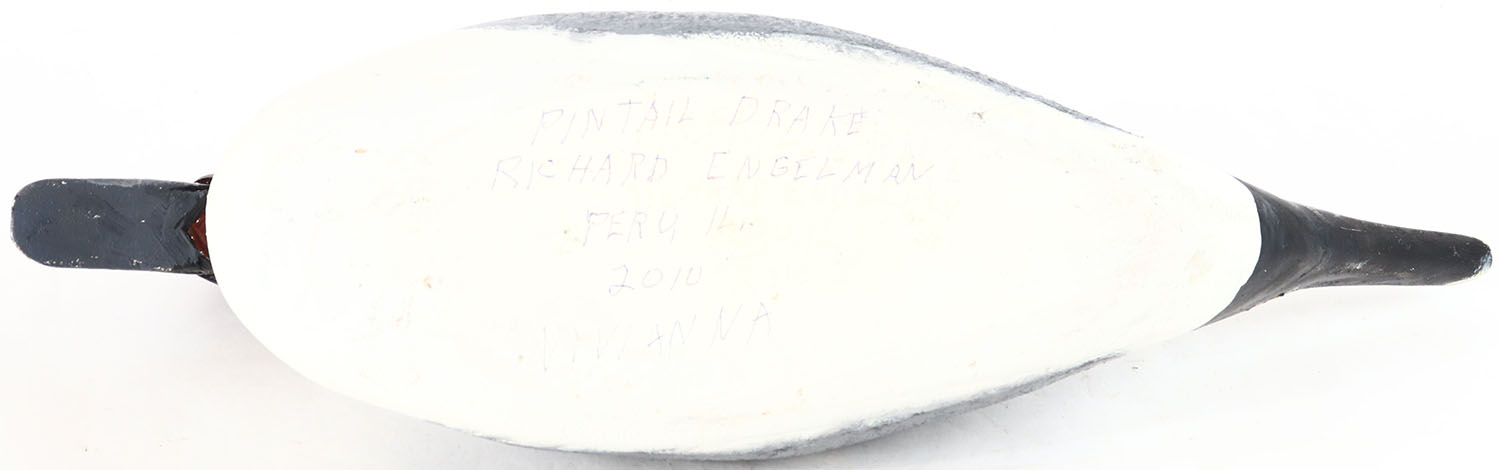 PINTAIL DRAKE
RICHARD ENGELMAN
PERU IL.
2010
VIVIANNA